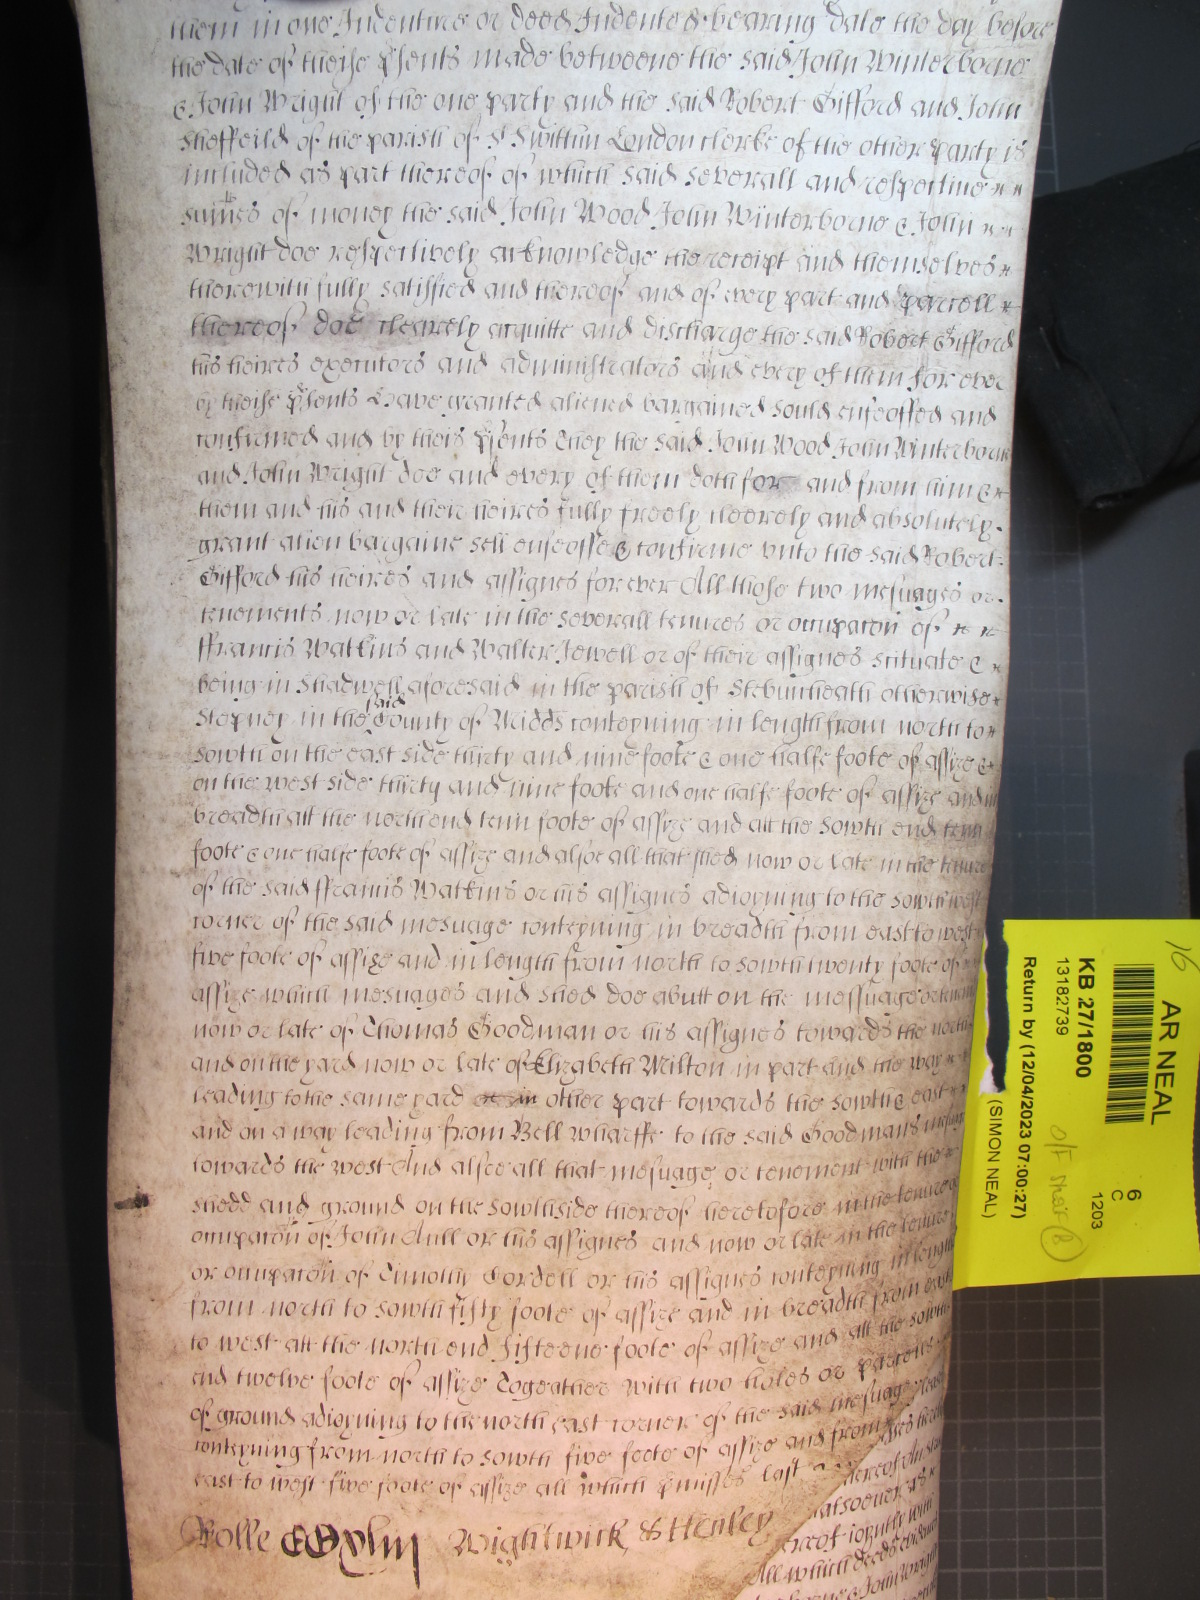 them in one Indenture or deed Indented bearing date the day before
the date of theise psents made betweene the said John Winterborne
& John Wright of the one party and the said Robert Gifford and John
Sheffeild of the parish of St Swithin London Clerke of the other party is
included as part thereof of which said severall and respective
summes of money the said John Wood John Winterborne & John
Wright doe respectively acknowledge the receipt and themselves
therewith fully satisfied and thereof and of every part and parcell
thereof doe clearely acquitte and discharge the said Robert Gifford
his heires executors and administrators and every of them for ever
by theise psents Have graunted aliened bargained sould enfeoffed and
confirmed and by theis psents they the said John Wood John Winterborne
and John Wright doe and every of them doth for and from him &
them and his and their heires fully freely cleerely and absolutely
grant alien bargaine sell enfeoffe & confirme unto the said Robert
Gifford his heires and assignes for ever All those two mesuages or
tenements now or late in the severall tenures or occupacon of
ffrancis Watkins and Walter Jewell or of their assignes scituate &
being in Shadwell aforesaid in the parish of Stebunheath otherwise
Stepney in the said County of Midds conteyning in length from north to
sowth on the east side thirty and nine foote & one halfe foote of assize &
on the west side thirty and nine foote and one halfe foote of assize and in
breadth att the north end tenn foote of assize and att the sowth end tenn
foote & one halfe foote of assize and alsoe all that shed now or late in the tenure
of the said ffrancis Watkins or his assignes adioyning to the sowth west
corner of the said mesuage conteyning in breadth from east to west
five foote of assize and in length from north to sowth twenty foote of
assize which mesuages and shed doe abutt on the messuage or
now or late of Thomas Goodman or his assignes towards the north
and on the yard now or late of Elizabeth Milton in part and the way
leading to the same yard in other part towards the sowth & east
and on a way leading from Bell Wharffe to the said Goodmans
towards the west And alsoe all that mesuage or tenement with the
shedd and ground on the sowth side thereof heretofore in the tenure or
occupacon of John Aull or his assignes and now or late in the tenure
or occupacon of Timothy Cordell or his assignes conteyning in length
from north to sowth fifty foote of assize and in breadth from east
to west att the north end fifteene foote of assize and att the sowth
end twelve foote of assize Togeather with two holes or parcells
of ground adioyning to the north east corner of the said mesuage
conteyning from north to sowth five foote of assize and from
east to west five foote of assize all which pmisses last
Rolle CCxliij Wightwick & Henley
whatsoever
thereof ioyntly with
All which deeds
& John Wright
16
AR NEAL
KB 27/1800
13182739
Return by (12/04/2023 07:00:27)
(SIMON NEAL)
6
C
1203